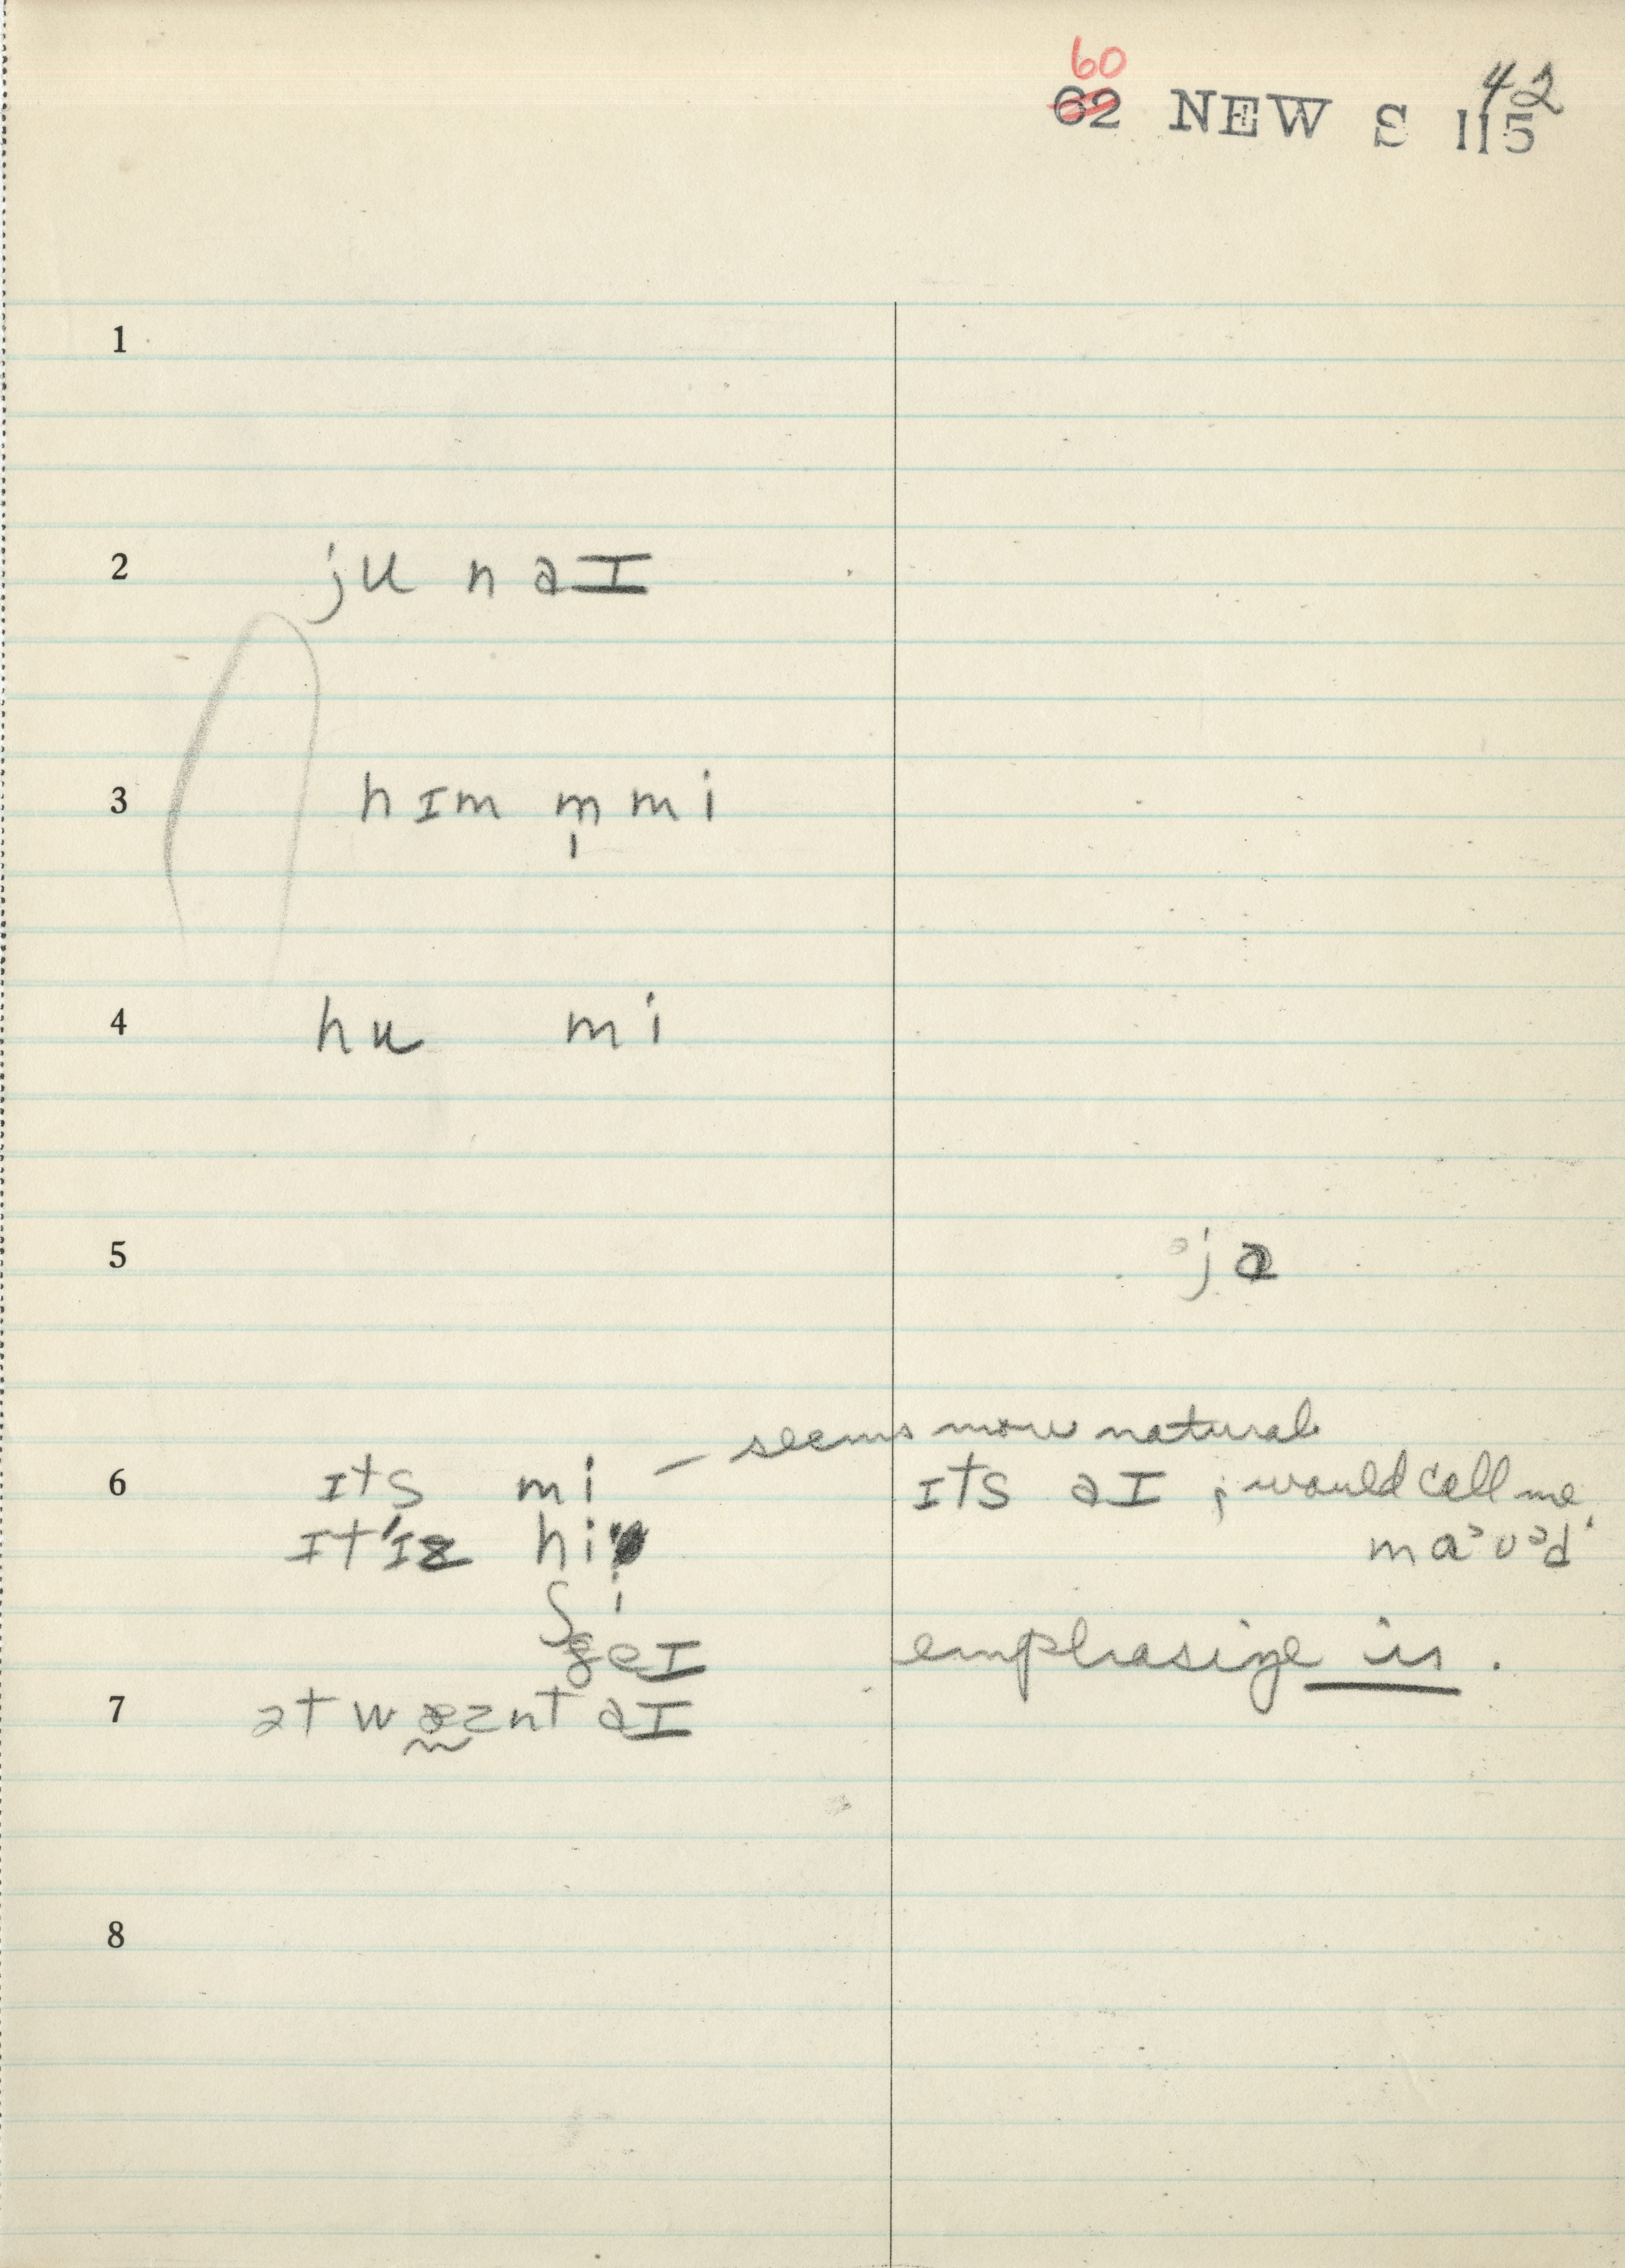 60 42
62 NEW S 115
1
2 ju n aɪ
3 hɪm m̩ mi
4 hu mi
5 ə ja
— seems more natural
6 ɪts mi ɪts aɪ ; would call me
ɪt'ɪz hi maᵊvᵊd'
ʃi
ðeɪ emphasize is .
7 ət wɐznt aɪ
8